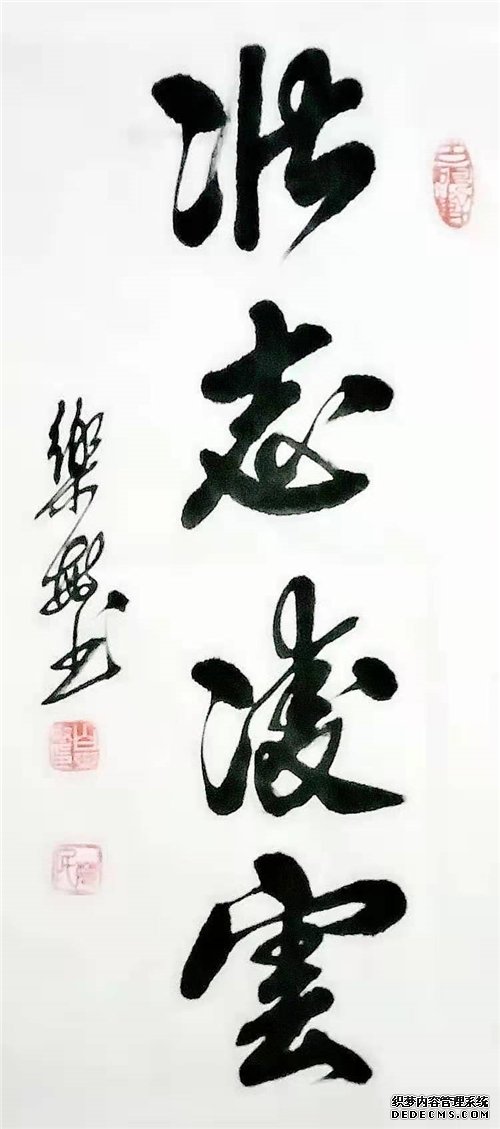 壮志凌雲
樂群书
织梦内容管理系统
DEDECMS.COM